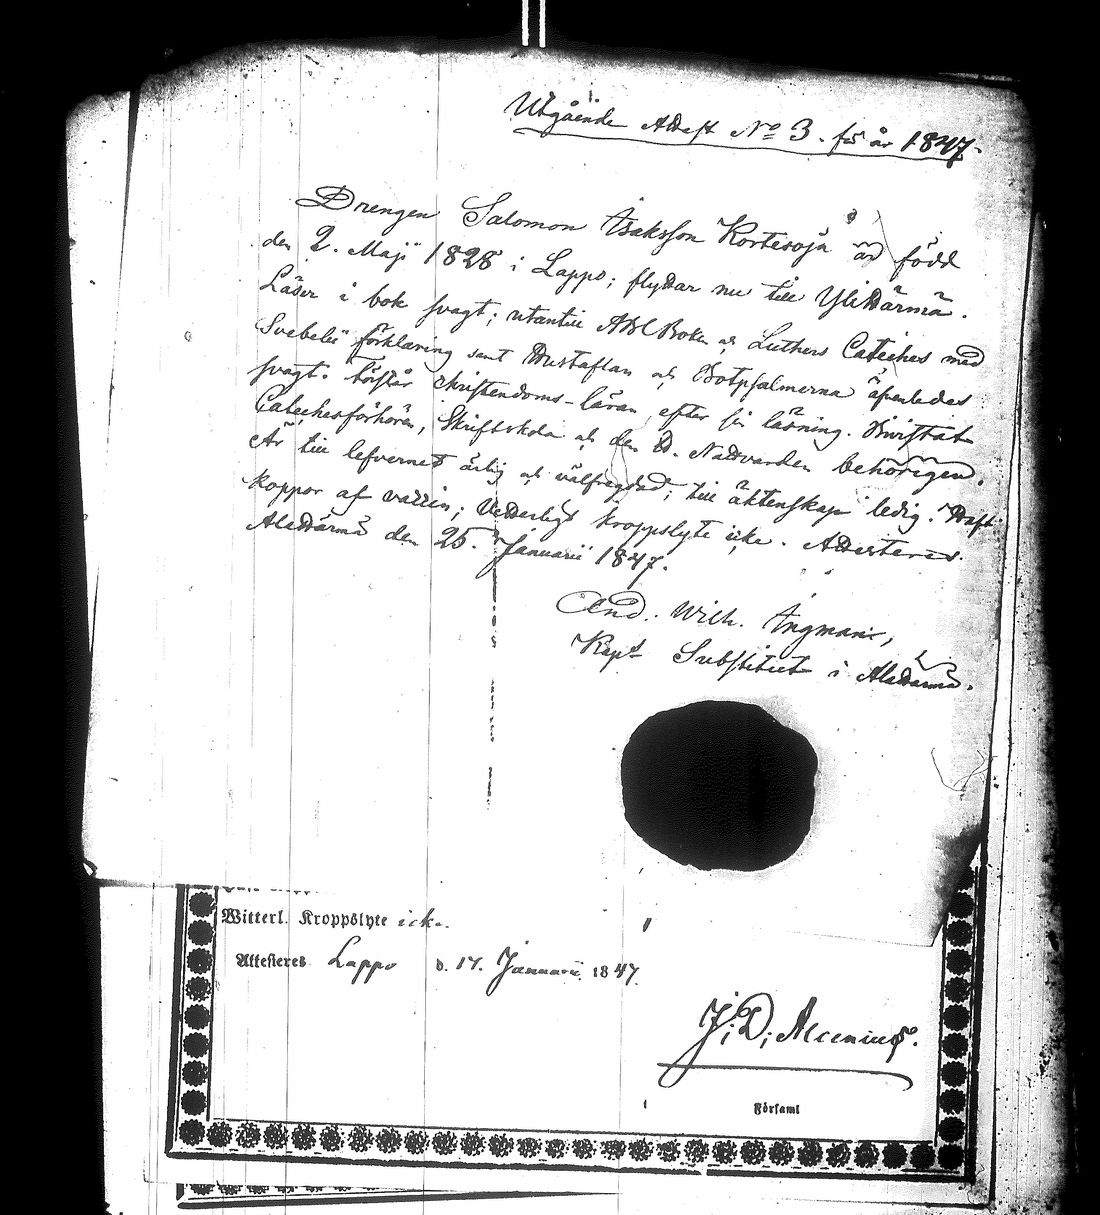 Utgående Attest No 3. för år 1847.
Drengen Salomon Isaksson Kortesoja är född
den 2. Maji 1828 i Lappo; flyttar nu till Ylihärmä.
Läser i bok svagt; utantill ABC Boken och Luthers Cateches med
Svebelii förklaring samt Hustaflan och Botpsalmerna äfvenledes
svagt. Förstår christendoms-läran efter sin läsning. Bivistat
Catechesförhören, Skriftskola och den H. Nattvarden behörigen.
Är till lefvernet ärlig och välfrejdad; till äktenskap ledig. Haft
koppor af vaccin; Vetterligt kroppslyte icke. Attesteras.
Alahärmä den 25. Januarii 1847.
And. Wilh. Ingman,
Kapls Substitut i Alahärmä.
Witterl. Kroppslyte icke.
Attesteres Lappo d. 17. Januarii 1847.
J. D. Alcenius.
Församl